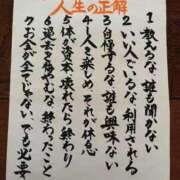 人生の正解
1 教えるな、誰も聞かない
2 いい人でいるな、利用される
3 自慢するな、誰も興味ない
4 一人を楽しめ、それが休息
5 体が資本、壊れたら終わり
6 過去を悔やむな、終わったこと
7 お金が全てじゃない、でも必要